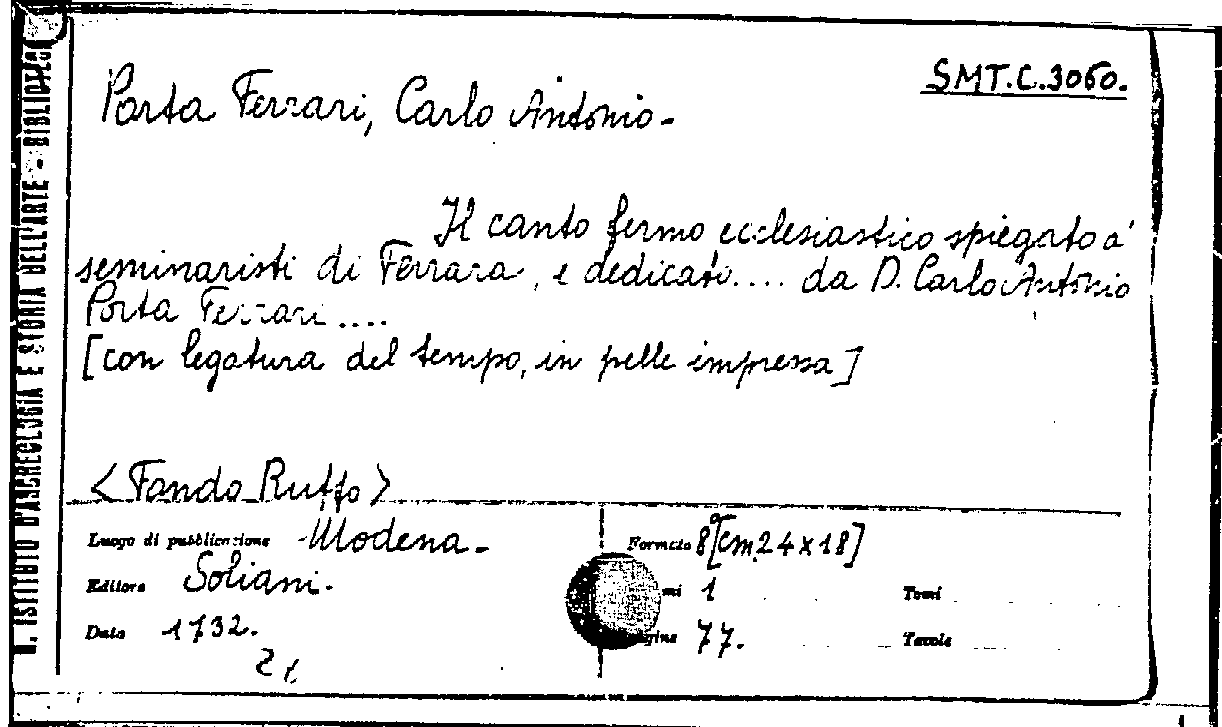 R. ISTITUTO D'ARCHEOLOGIA E STORIA DELL'ARTE - BIBLIOTECA
SMT.C.3060.
Porta Ferrari, Carlo Antonio-
Il canto fermo ecclesiastico spiegato a'
seminaristi di Ferrara, e dedicato.... da D. Carlo Antonio
Porta Ferrari....
[con legatura del tempo, in pelle impressa]
<Fondo Ruffo>
Luogo di pubblicazione Modena. Formato 8°[cm.24x18]
Editore Soliani. mi 1 Tomi
Data 1732. gine 77. Tavole